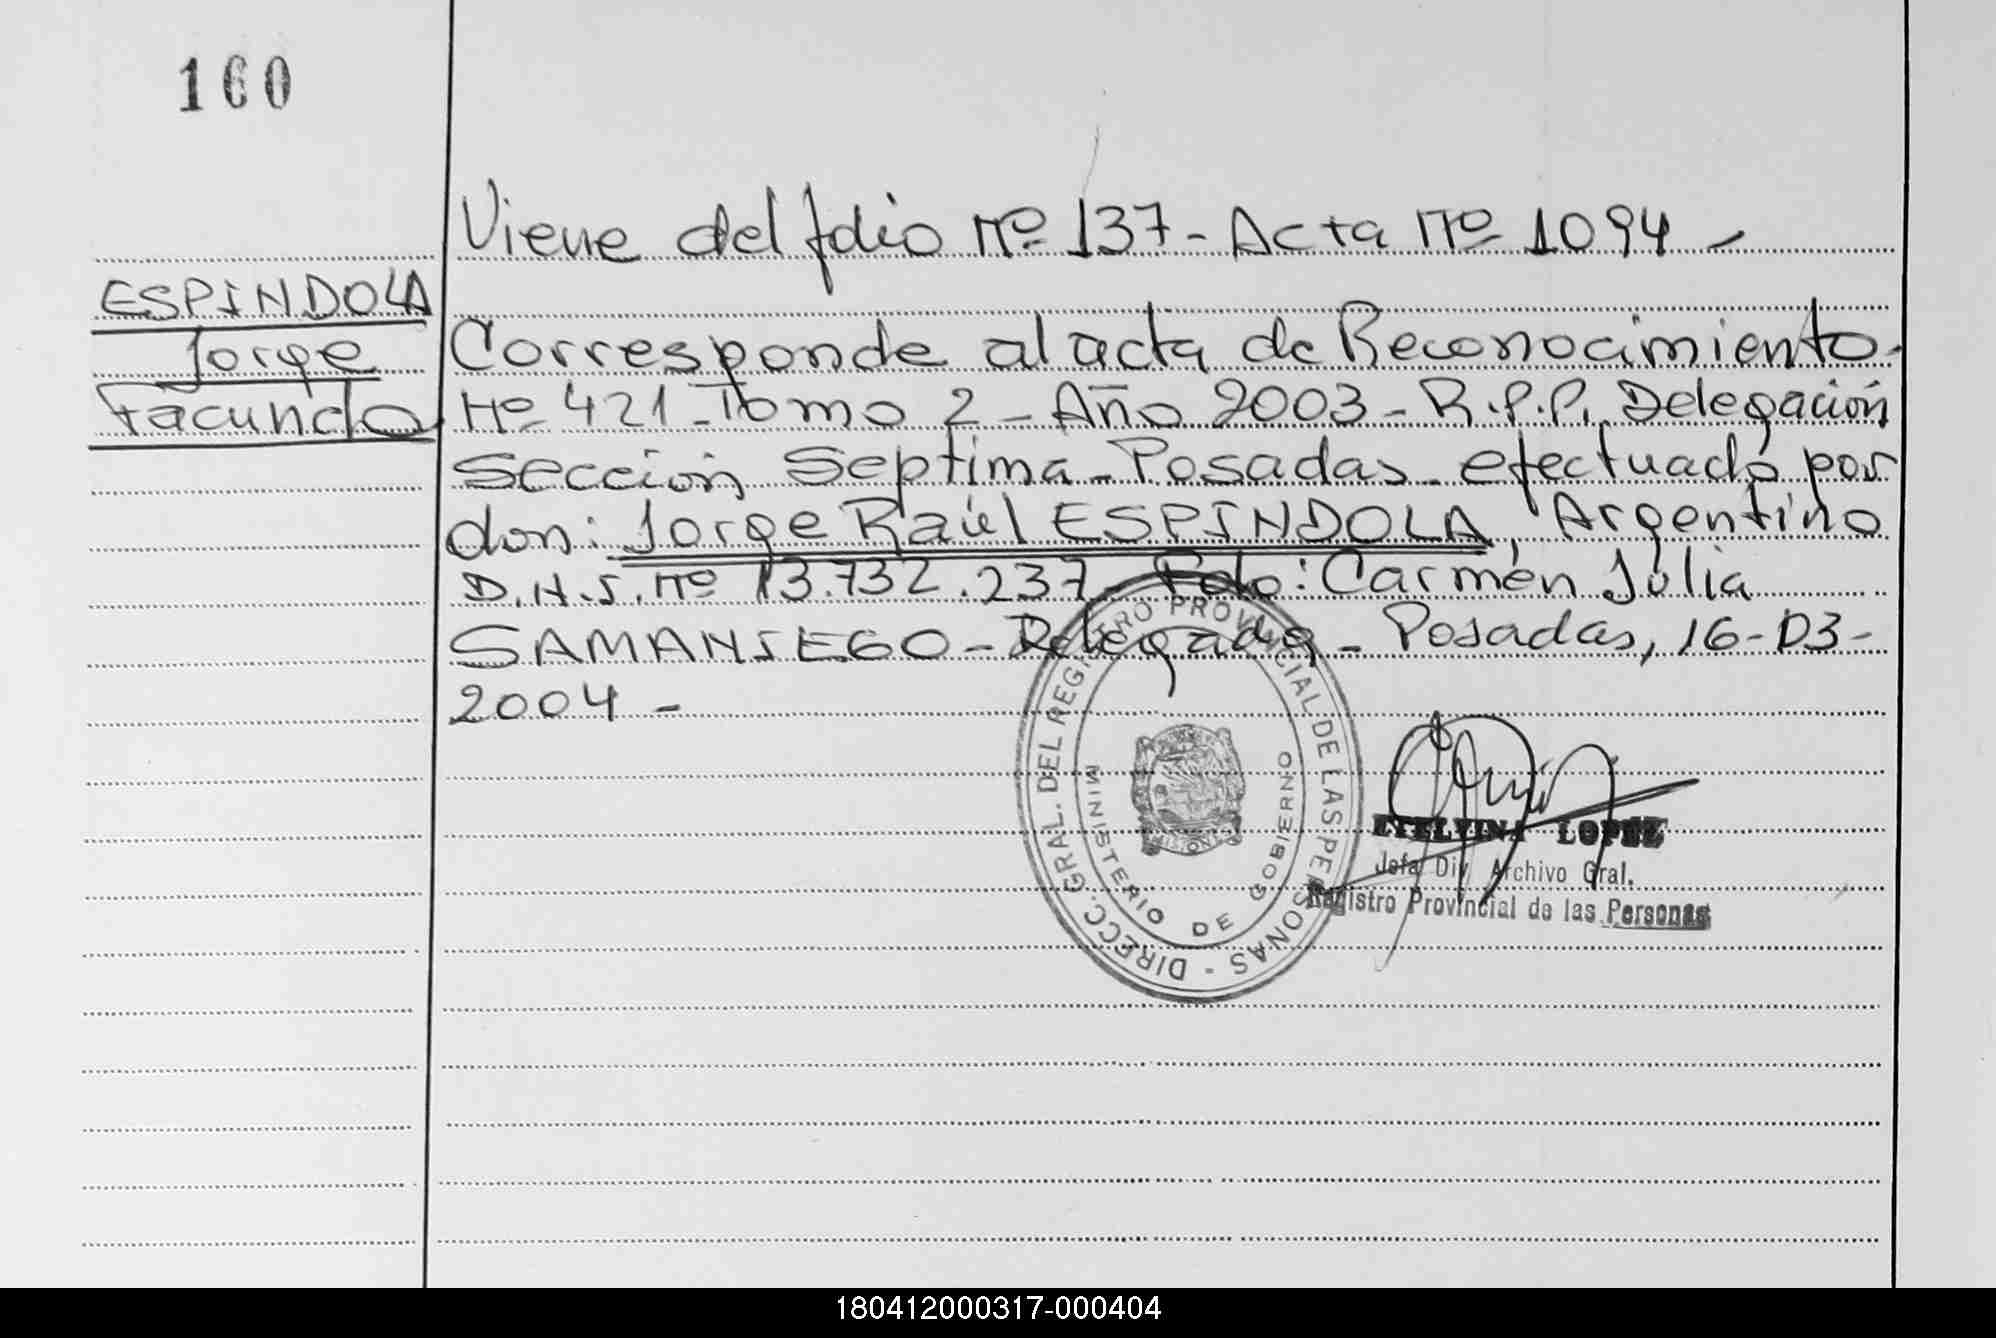 160
Viene del folio Nº 137 - Acta Nº 1094 -
ESPINDOLA
Jorge
Facundo
Corresponde al acta de Reconocimiento -
Nº 421 - Tomo 2 - Año 2003 - R.P.P. Delegación
Sección Septima - Posadas - efectuado por
don: Jorge Raúl ESPINDOLA, Argentino
D.N.I. Nº 13.732.237 - Fdo: Carmén Júlia
SAMANIEGO - Delegada - Posadas, 16-03-
2004 -
DIRECC. GRAL. DEL REGISTRO PROVINCIAL DE LAS PERSONAS -
MINISTERIO DE GOBIERNO
MISIONES
ETELVINA LOPEZ
Jefa Div. Archivo Gral.
Registro Provincial de las Personas
180412000317-000404